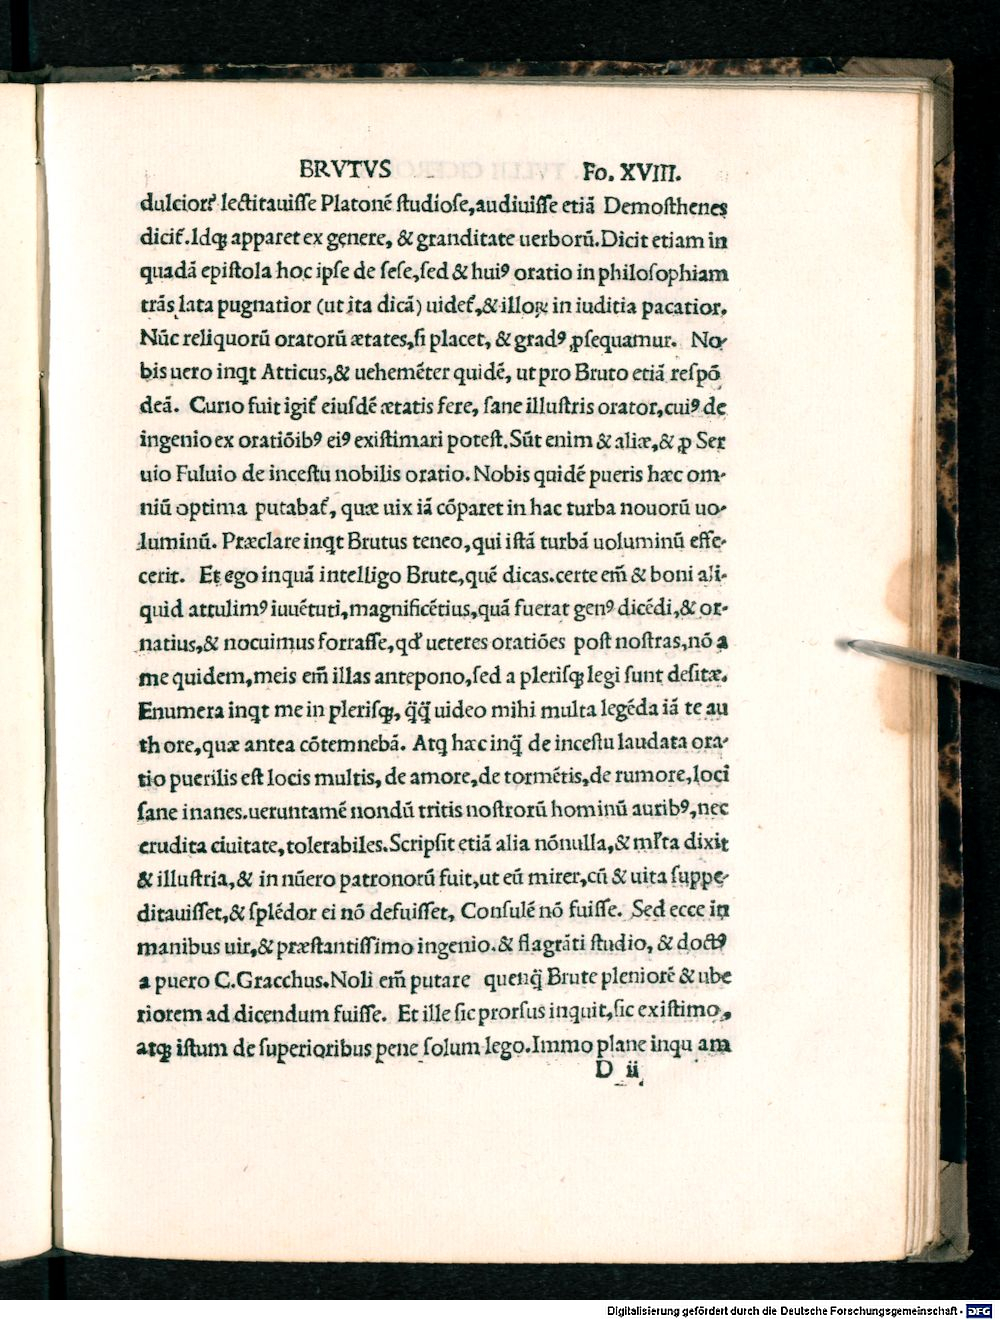 BRVTVS Fo. XVIII.
dulcior? lectitauiſſe Platonē ſtudioſe,audiuiſſe etiā Demoſthenes
dicit̃. Idq; apparet ex genere, & granditate uerborū. Dicit etiam in
quadā epiſtola hoc ipſe de ſeſe,ſed & huiꝰ oratio in philoſophiam
trāſlata pugnatior (ut ita dicā) uidet̃,& illoꝝ in iuditia pacatior.
Nūc reliquorū oratorū ætates,ſi placet, & gradꝰ ꝓſequamur. No-
bis uero inqt Atticus,& uehemēter quidē, ut pro Bruto etiā reſpō
deā. Curio fuit igit̃ eiuſdē ætatis fere, ſane illuſtris orator,cuiꝰ de
ingenio ex oratiōibꝰ eiꝰ exiſtimari poteſt. Sūt enim & aliæ,& ꝓ Ser
uio Fuluio de inceſtu nobilis oratio. Nobis quidē pueris hæc om-
niū optima putabat̃, quæ uix iā cōparet in hac turba nouorū uo-
luminū. Præclare inqt Brutus teneo,qui iſtā turbā uoluminū effe-
cerit. Et ego inquā intelligo Brute,quē dicas.certe em̄ & boni ali-
quid attulimꝰ iuuētuti,magnificētius,quā fuerat genꝰ dicēdi,& or-
natius,& nocuimus fortaſſe,qd̕ ueteres oratiōes poſt noſtras,nō a
me quidem,meis em̄ illas antepono,ſed a pleriſq; legi ſunt deſitæ.
Enumera inqt me in pleriſq;, q̄q̄ uideo mihi multa legēda iā te au
thore,quæ antea cōtemnebā. Atq; hæc inq̄ de inceſtu laudata ora-
tio puerilis eſt locis multis, de amore,de tormētis,de rumore,loci
ſane inanes.ueruntamē nondū tritis noſtrorū hominū auribꝰ,nec
erudita ciuitate,tolerabiles. Scripſit etiā alia nōnulla,& ml̕ta dixit
& illuſtria,& in nūero patronorū fuit,ut eū mirer,cū & uita ſuppe-
ditauiſſet,& ſplēdor ei nō defuiſſet, Conſulē nō fuiſſe. Sed ecce in
manibus uir,& præſtantiſſimo ingenio.& flagrāti ſtudio, & doctꝰ
a puero C.Gracchus. Noli em̄ putare quenq̄ Brute pleniorē & ube
riorem ad dicendum fuiſſe. Et ille ſic prorſus inquit,ſic exiſtimo,
atq; iſtum de ſuperioribus pene ſolum lego. Immo plane inquam
D ii
Digitalisierung gefördert durch die Deutsche Forschungsgemeinschaft - DFG